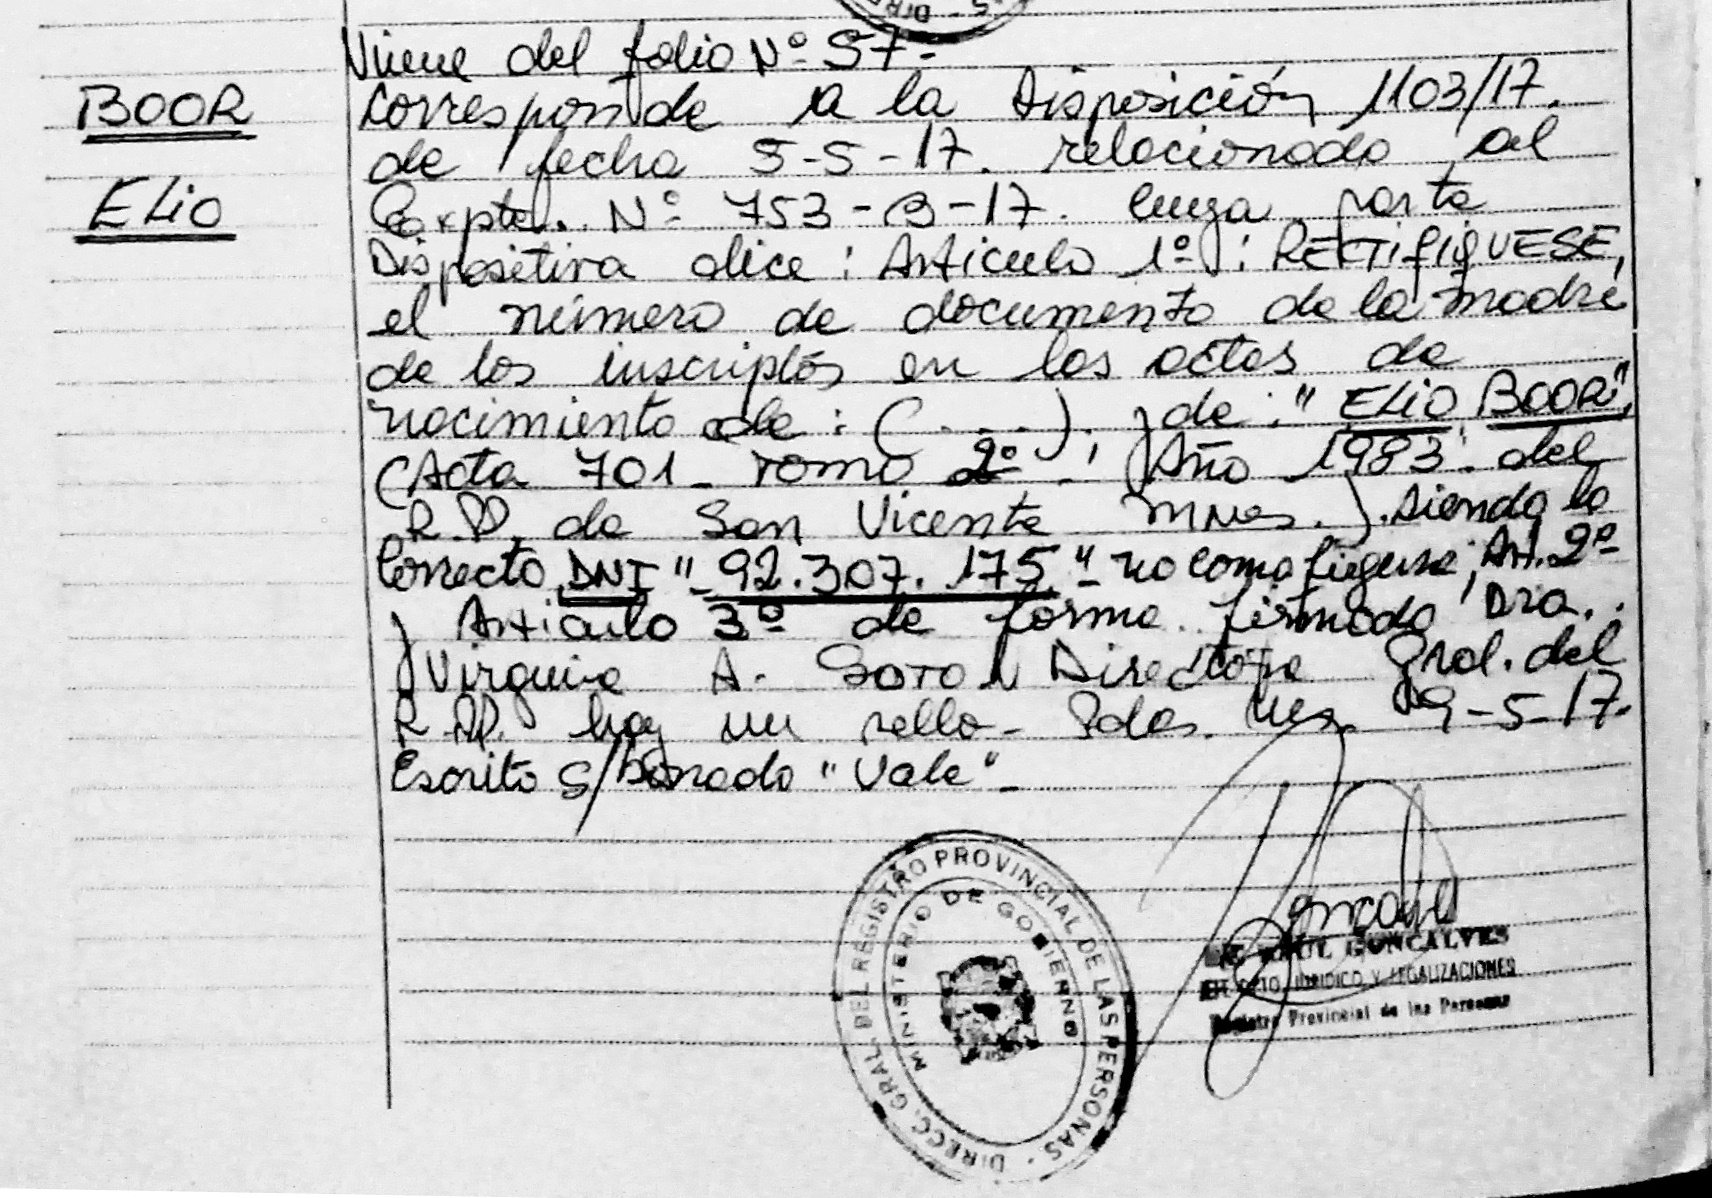 BOOR
ELIO
Viene del folio Nº 57-
Corresponde a la Disposición 1103/17.
de fecha 5-5-17. relacionado al
Expte. Nº 753-B-17. cuya parte
Dispositiva dice: Articulo 1º: RECTIFIQUESE,
el número de documento de la madre
de los inscriptos en las actas de
nacimiento de: (.....). y de: "ELIO BOOR",
(Acta 701- Tomo 2º-, Año 1983. del
R.PP. de San Vicente Mnes.). siendo lo
Correcto DNI "92.307.175"- no como figura, Art. 2º
y Articulo 3º de forma. firmado Dra.
Virginia A. Soto Directora Gral. del
R.PP. hay un sello- Pdas. Mes. 9-5-17.
Escrito S/ borrado "Vale"-
DIRECC. GRAL. DEL REGISTRO PROVINCIAL DE LAS PERSONAS
MINISTERIO DE GOBIERNO
GONCALVES
JURIDICO Y LEGALIZACIONES
Registro Provincial de las Personas